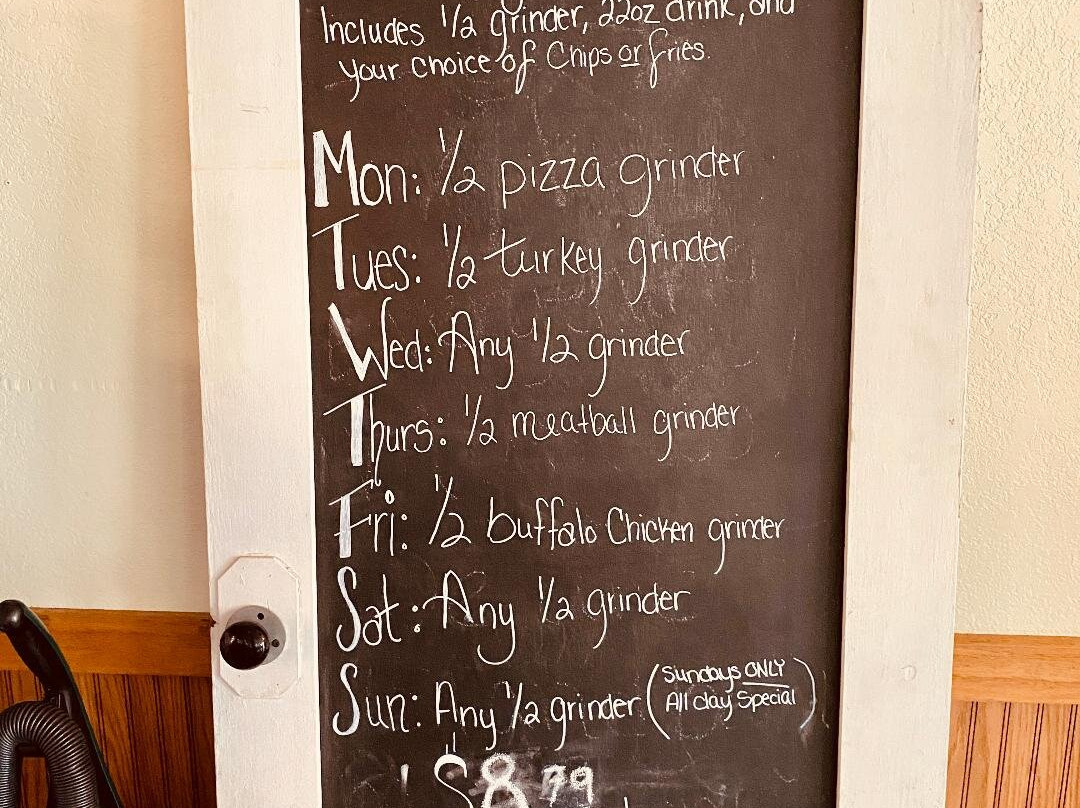 Includes 1/2 grinder, 22oz drink, and
your choice of Chips or fries.
Mon: 1/2 pizza grinder
Tues: 1/2 turkey grinder
Wed: Any 1/2 grinder
Thurs: 1/2 meatball grinder
Fri: 1/2 buffalo Chicken grinder
Sat: Any 1/2 grinder
Sun: Any 1/2 grinder (Sundays ONLY
All day Special)
$8.79